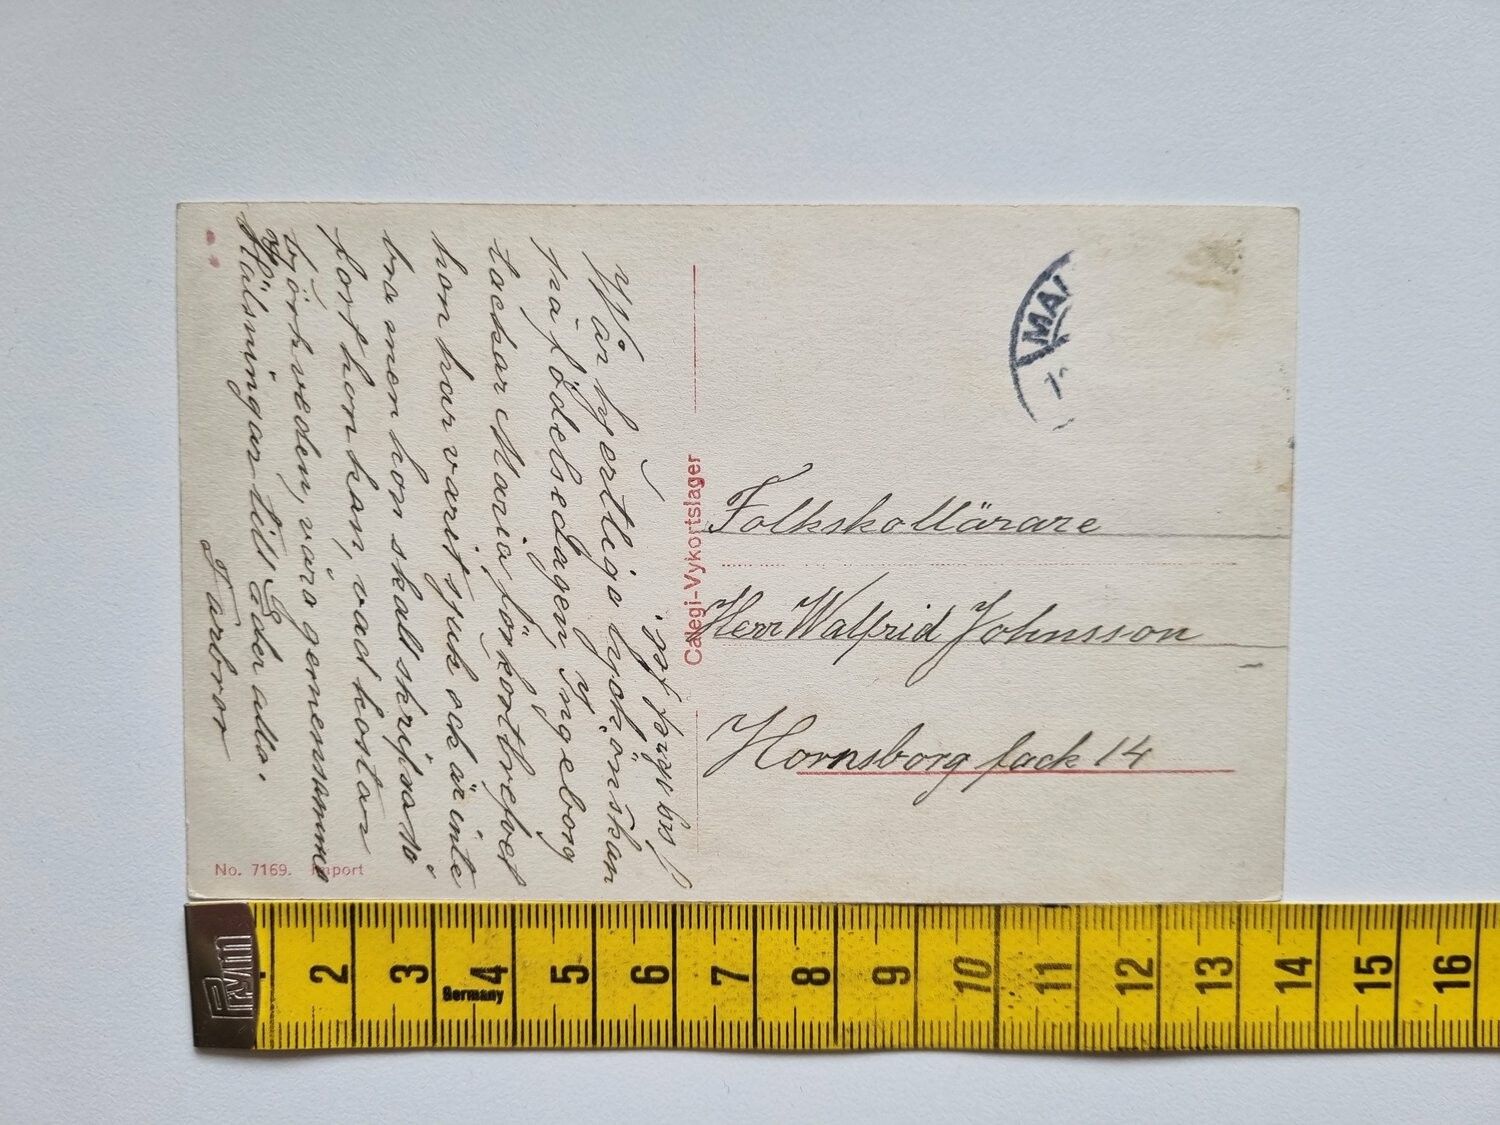 Vår hjertliga lyckönskan
på födelsedagen, Ingeborg
tackar Maria för kortbrefvet
hon har varit sjuk och är inte
bra men hon skall skrifva så
fort hon kan, vad kostar
björkveden, våra gemensamma
Hälsningar till Eder alla.
Farbror
Calegi-Vykortslager
MAL
Folkskollärare
Herr Walfrid Johnsson
Hornsborg fack 14
No. 7169. Import
Prym
2 3 4 5 6 7 8 9 10 11 12 13 14 15 16
Germany